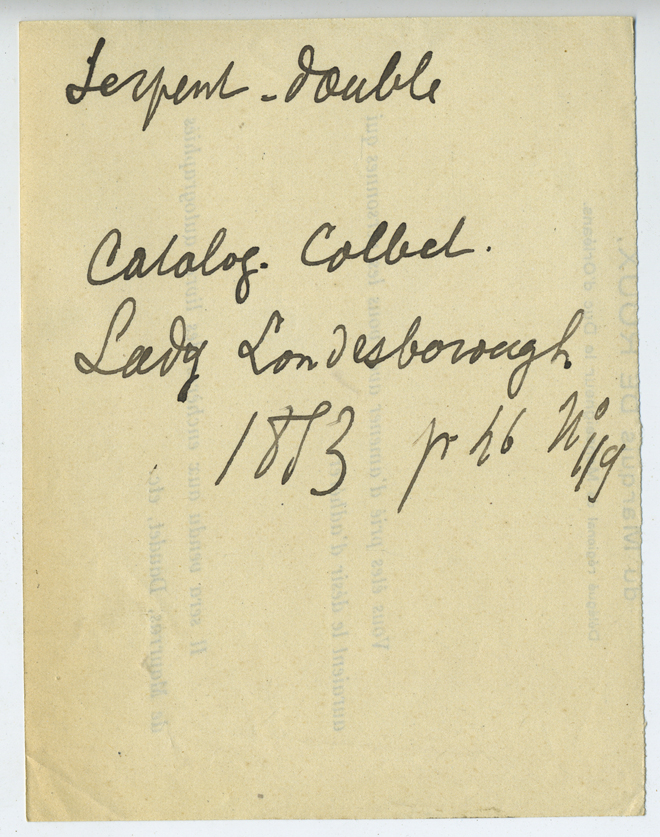 Serpent - double
Catalog. Collect.
Lady Londesborough
1853 p. 46 No 119